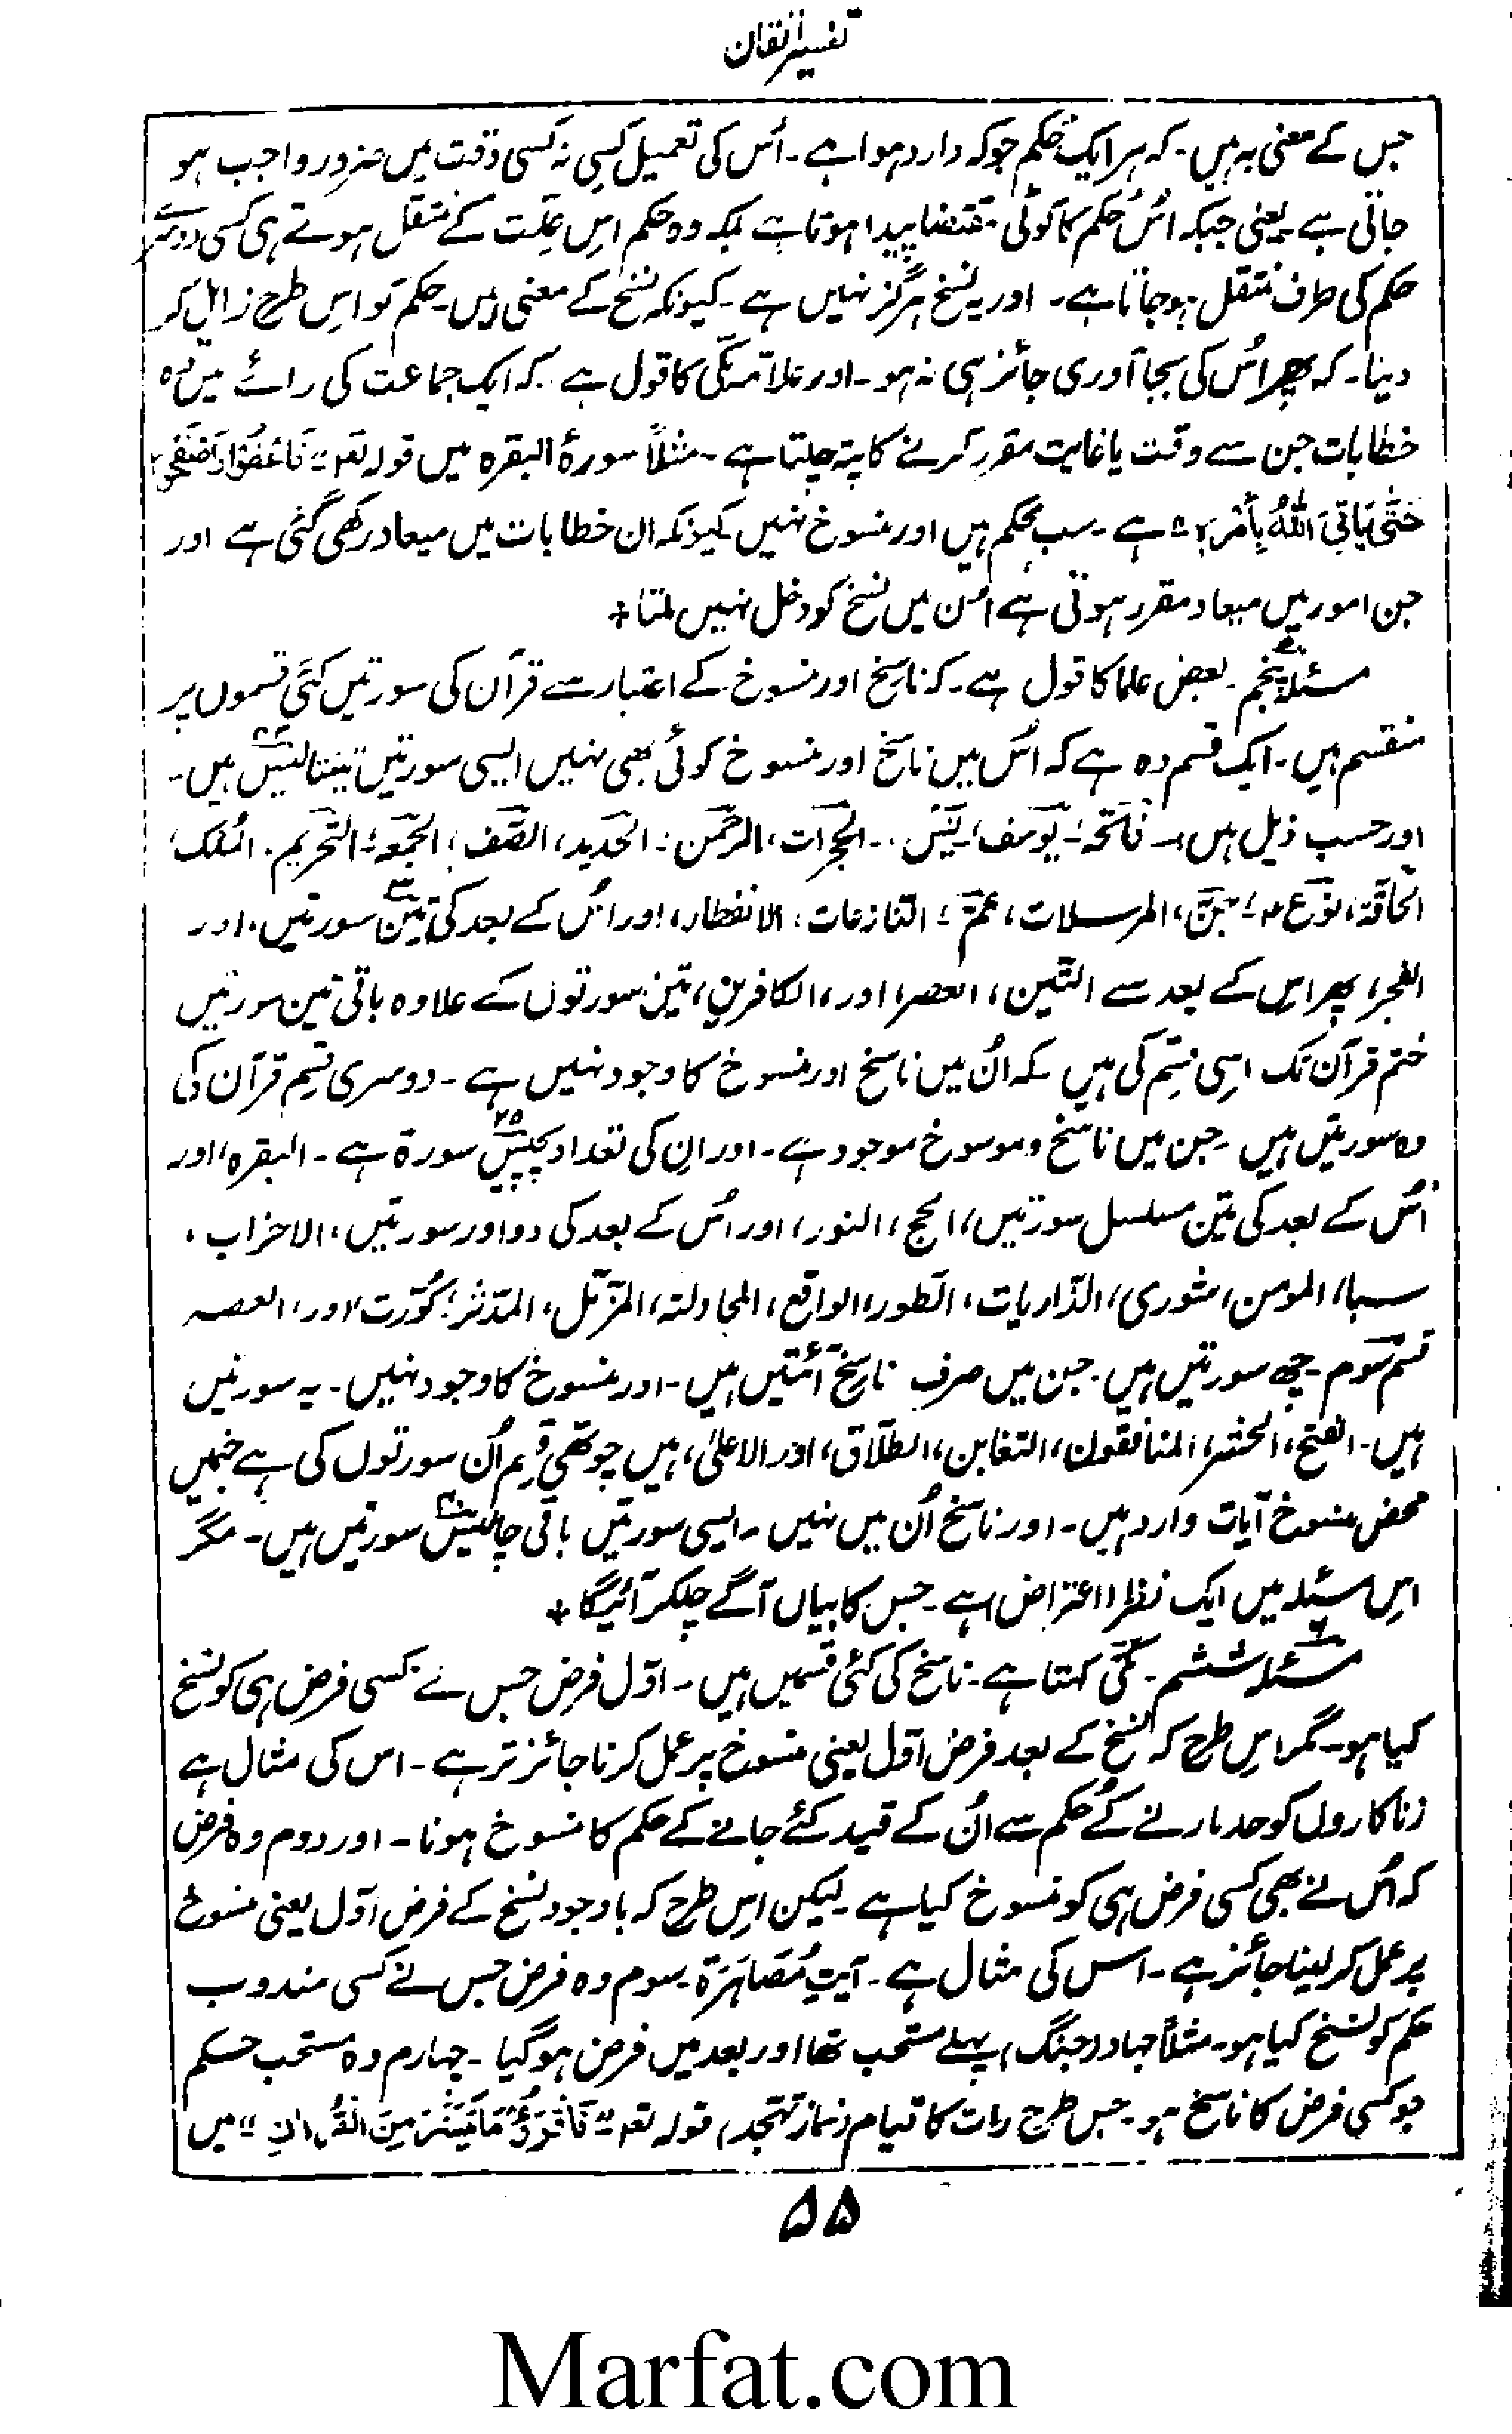 تفسیر اتقان
جس کے معنی یہ ہیں۔ کہ ہر ایک حکم جو کہ وارد ہوا ہے۔ اُس کی تعمیل کسی نہ کسی وقت میں ضرور واجب ہو
جاتی ہے یعنی جبکہ اُس حکم کا کوئی مقتضا پیدا ہوتا ہے بلکہ وہ حکم اِس عِلّت کے منتقل ہوتے ہی کسی دوسرے
حکم کی طرف منتقل ہو جاتا ہے۔ اور یہ نسخ ہرگز نہیں ہے۔ کیونکہ نسخ کے معنی ہیں۔ حکم کو اِس طرح زایل کر
دینا۔ کہ پھر اُس کی بجا آوری جائز ہی نہ ہو۔ اور علاّمہ مکّی کا قول ہے۔ کہ ایک جماعت کی رائے میں وہ
خطابات جن سے وقت یا غایت مقرر کرنے کا پتہ چلتا ہے۔ مثلاً سورۂ البقرہ میں قولہ تعہ " فَاعْفُوْا وَاصْفَحُوْا
حَتّٰی یَاْتِیَ اللّٰہُ بِاَمْرِہٖ " ہے۔ سب محکم ہیں اور منسوخ نہیں کیونکہ ان خطابات میں میعاد رکھی گئی ہے اور
جن امور میں میعاد مقرر ہوتی ہے اُن میں نسخ کو دخل نہیں ملتا +
مسئلہ پنجم۔ بعض علما کا قول ہے۔ کہ ناسخ اور منسوخ کے اعتبار سے قرآن کی سورتیں کئی قسموں پر
منقسم ہیں۔ ایک قسم وہ ہے کہ اُس میں ناسخ اور منسوخ کوئی بھی نہیں ایسی سورتیں تینتالیس ہیں۔
اور حسب ذیل ہیں :۔ فاتحہ، یوسف، یٰس، الحجرات، الرحمٰن، الحدید، الصّف، الجمعہ، التحریم۔ المُلک،
الحاقّہ، نوح ع، جنّ، المرسلات، عمّ، النازعات، الانفطار، اور اُس کے بعد کی تین ۳ سورتیں، اور
الفجر، پھر اِس کے بعد سے التّین، العصر، اور، الکافرین، تین سورتوں کے علاوہ باقی تمین سورتیں
ختم قرآن تک اِسی قِسم کی ہیں کہ اُن میں ناسخ اور منسوخ کا وجود نہیں ہے۔ دوسری قسم قرآن کی
وہ سورتیں ہیں۔ جن میں ناسخ و موسوخ موجود ہے۔ اور اِن کی تعداد پچیس ۲۵ سورۃ ہے۔ البقرہ، اور
اُس کے بعد کی تین مسلسل سورتیں، الحج، النور، اور اُس کے بعد کی دو اور سورتیں، الاحزاب،
سبا، المومن، شوریٰ، الذّاریات، الطور، الواقع، المجادلۃ، المزّمّل، المدّثر، کُوّرت، اور، العصر
قسم سوم۔ چھ سورتیں ہیں۔ جن میں صرف ناسخ آئتیں ہیں۔ اور منسوخ کا وجود نہیں۔ یہ سورتیں
ہیں۔ الفتح، الحشر، المنافقون، التغابن، الطلّاق، اور الاعلیٰ، ہیں چوتھی قِسم اُن سورتوں کی ہے جنمیں
محض منسوخ آیات وارد ہیں۔ اور ناسخ اُن میں نہیں۔ ایسی سورتیں باقی چالیس ۴۰ سورتیں ہیں۔ مگر
اِس مسئلہ میں ایک نظر (اعتراض) ہے۔ جس کا بیاں آگے چلکر آئیگا +
مسئلہ ششم ۶۔ مکّی کہتا ہے۔ ناسخ کی کئی قسمیں ہیں۔ اوّل فرض جس نے کسی فرض ہی کو نسخ
کیا ہو۔ مگر اِس طرح کہ نسخ کے بعد فرض اوّل یعنی منسوخ پر عمل کرنا جائز تر ہے۔ اس کی مثال ہے
زنا کاروں کو حد مارنے کے حُکم سے اُن کے قید کئے جانے کے حکم کا منسوخ ہونا۔ اور دوم وہ فرض
کہ اُس نے بھی کسی فرض ہی کو منسوخ کیا ہے۔ لیکن اِس طرح کہ باوجود نسخ کے فرض اوّل یعنی منسوخ
پر عمل کر لینا جائز ہے۔ اس کی مثال ہے۔ آیتِ مُصَابَرَۃ۔ سوم وہ فرض جس نے کسی مندوب
حکم کو نسخ کیا ہو۔ مثلاً جہاد (جنگ) پہلے مستحب تھا اور بعد میں فرض ہو گیا۔ چہارم وہ مستحب حکم
جو کسی فرض کا ناسخ ہو۔ جس طرح رات کا قیام (نماز تہجد) قولہ تعہ " فَاقْرَؤُا مَا تَیَسَّرَ مِنَ الْقُرْاٰنِ " میں
۵۵
Marfat.com